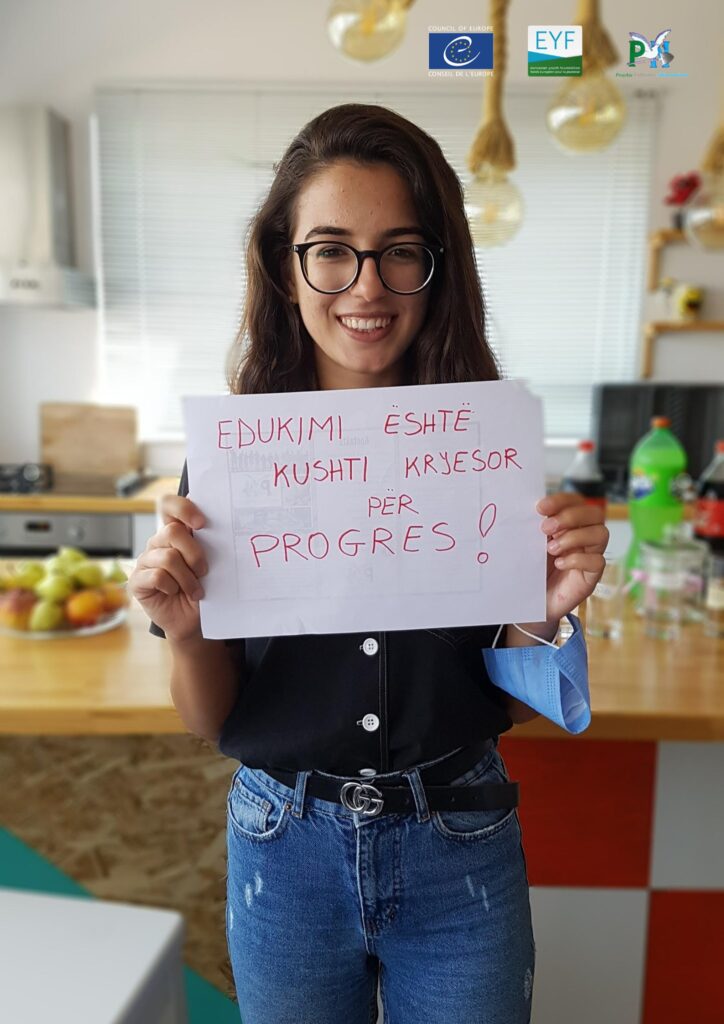 COUNCIL OF EUROPE
CONSEIL DE L'EUROPE
EYF
EDUKIMI ËSHTË
KUSHTI KRYESOR
PËR
PROGRES!